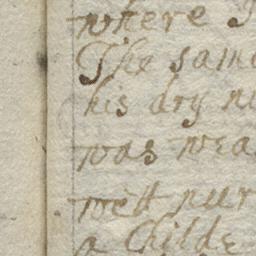 where I
The same
his dry n
was wea
wett nur
a Childe